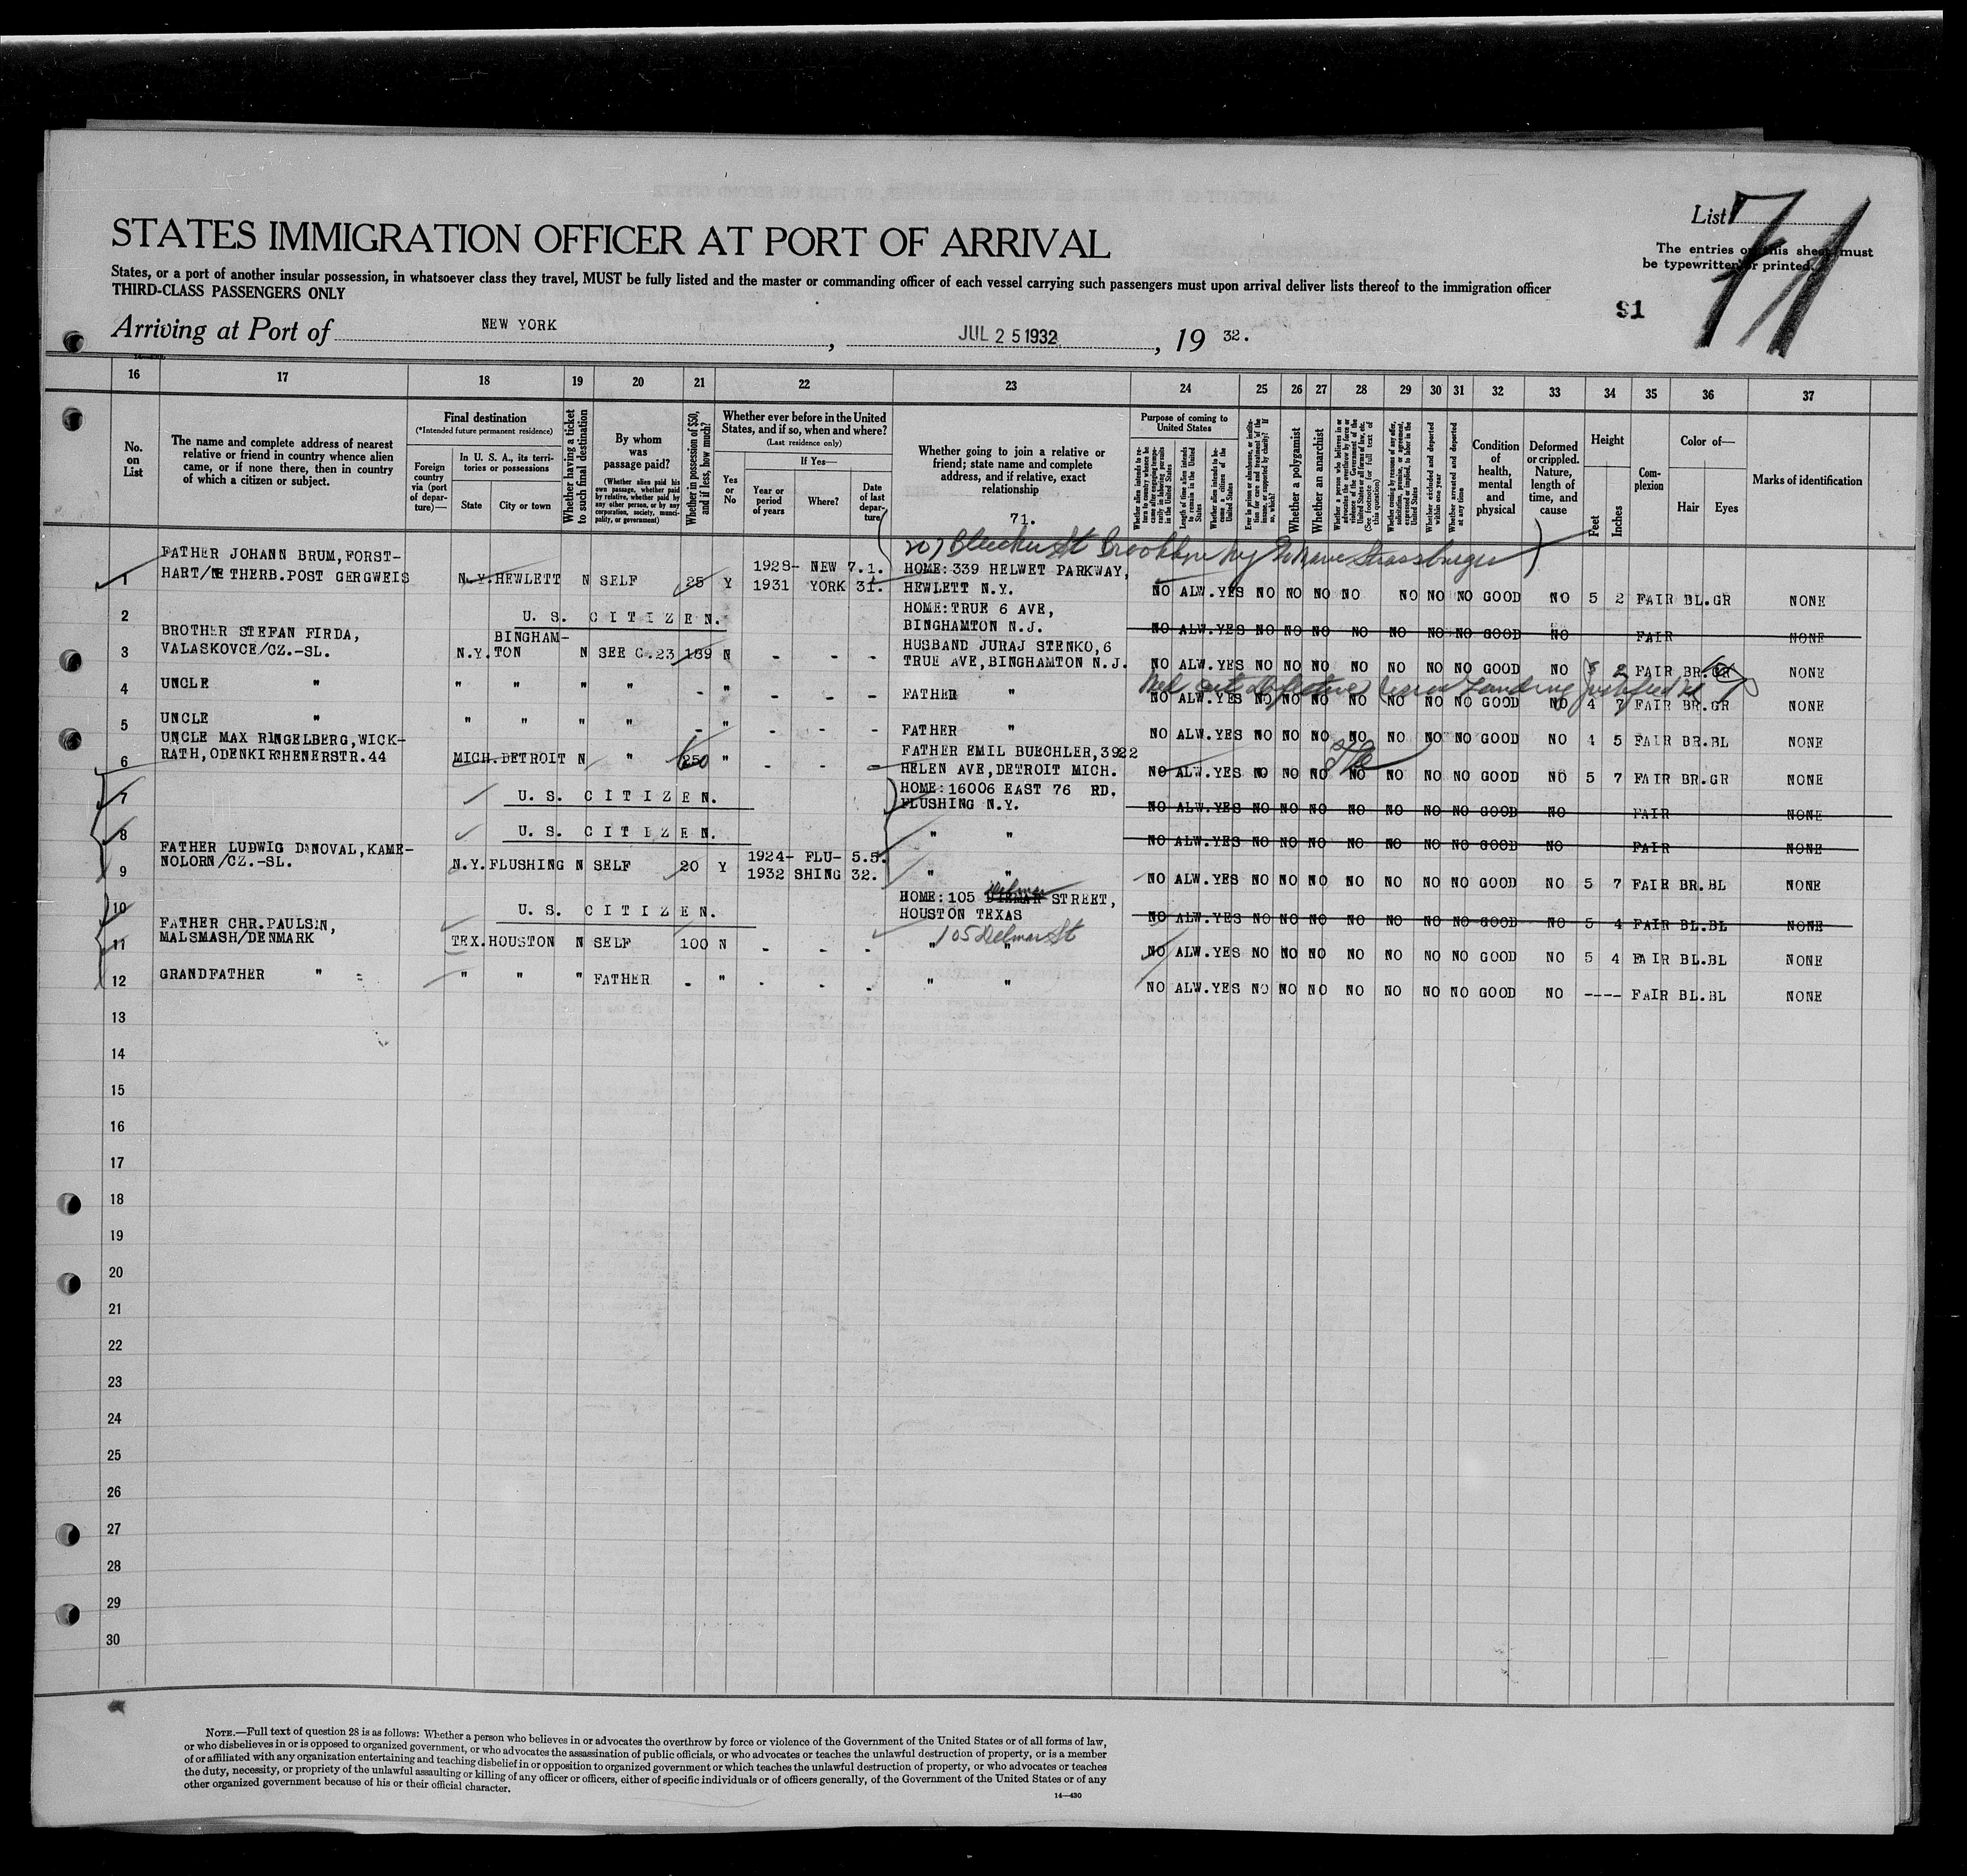 List 71
STATES IMMIGRATION OFFICER AT PORT OF ARRIVAL
The entries on this sheet must
be typewritten or printed.
States, or a port of another insular possession, in whatsoever class they travel, MUST be fully listed and the master or commanding officer of each vessel carrying such passengers must upon arrival deliver lists thereof to the immigration officer
THIRD-CLASS PASSENGERS ONLY
91
Arriving at Port of NEW YORK, JUL 25 1932, 19 32.
16 17 18 19 20 21 22 23 24 25 26 27 28 29 30 31 32 33 34 35 36 37
No. on List
The name and complete address of nearest relative or friend in country whence alien came, or if none there, then in country of which a citizen or subject.
Final destination
(*Intended future permanent residence)
Foreign country via (port of departure)—
In U. S. A., its territories or possessions
State
City or town
Whether having a ticket to such final destination
By whom was passage paid?
(Whether alien paid his own passage, whether paid by relative, whether paid by any other person, or by any corporation, society, municipality, or government)
Whether in possession of $50, and if less, how much?
Whether ever before in the United States, and if so, when and where?
(Last residence only)
Yes or No
If Yes—
Year or period of years
Where?
Date of last departure
Whether going to join a relative or friend; state name and complete address, and if relative, exact relationship
71.
Purpose of coming to United States
Length of time alien intends to remain in the United States
Whether alien intends to become a citizen of the United States
Whether a polygamist
Whether an anarchist
Whether excluded and deported within one year
Whether arrested and deported at any time
Condition of health, mental and physical
Deformed or crippled. Nature, length of time, and cause
Height
Feet
Inches
Complexion
Color of—
Hair
Eyes
Marks of identification
207 Bleecker St Brooklyn NY
1 FATHER JOHANN BRUM, FORST-
HART/NETHERB.POST GERGWEIS N.Y. HEWLETT N SELF 25 Y 1928- NEW 7.1.
1931 YORK 31. HOME: 339 HELWET PARKWAY,
HEWLETT N.Y. NO ALW. YES NO NO NO NO NO NO NO GOOD NO 5 2 FAIR BL. GR NONE
2 U. S. CITIZEN. HOME: TRUE 6 AVE,
BINGHAMTON N.J. NO ALW. YES NO NO NO NO NO NO NO GOOD NO FAIR NONE
3 BROTHER STEFAN FIRDA,
VALASKOVCE/CZ.-SL. N.Y. BINGHAM-
TON N SEE C.23 189 N - - - HUSBAND JURAJ STENKO, 6
TRUE AVE, BINGHAMTON N.J. NO ALW. YES NO NO NO NO NO NO NO GOOD NO 5 2 FAIR BR. GR NONE
4 UNCLE " " " " " - " - - - FATHER " NO ALW. YES NO NO NO NO NO NO NO GOOD NO 4 7 FAIR BR. GR NONE
5 UNCLE " " " " " - " - - - FATHER " NO ALW. YES NO NO NO NO NO NO NO GOOD NO 4 5 FAIR BR. BL NONE
6 UNCLE MAX RINGELBERG, WICK-
RATH, ODENKIRCHENERSTR. 44 MICH. DETROIT N " 250 " - - - FATHER EMIL BUECHLER, 3922
HELEN AVE, DETROIT MICH. NO ALW. YES NO NO NO NO NO NO NO GOOD NO 5 7 FAIR BR. GR NONE
7 U. S. CITIZEN. HOME: 16006 EAST 76 RD,
FLUSHING N.Y. NO ALW. YES NO NO NO NO NO NO NO GOOD NO FAIR NONE
8 U. S. CITIZEN. " " NO ALW. YES NO NO NO NO NO NO NO GOOD NO FAIR NONE
9 FATHER LUDWIG DANOVAL, KAME-
NOLORN/CZ.-SL. N.Y. FLUSHING N SELF 20 Y 1924- FLU- 5.5.
1932 SHING 32. " " NO ALW. YES NO NO NO NO NO NO NO GOOD NO 5 7 FAIR BR. BL NONE
10 U. S. CITIZEN. HOME: 105 Delmar STREET,
HOUSTON TEXAS NO ALW. YES NO NO NO NO NO NO NO GOOD NO 5 4 FAIR BL. BL NONE
105 Delmar St
11 FATHER CHR. PAULSEN,
MALSMASH/DENMARK TEX. HOUSTON N SELF 100 N - - - " " NO ALW. YES NO NO NO NO NO NO NO GOOD NO 5 4 FAIR BL. BL NONE
12 GRANDFATHER " " " " FATHER - " - - - " " NO ALW. YES NO NO NO NO NO NO NO GOOD NO ---- FAIR BL. BL NONE
13
14
15
16
17
18
19
20
21
22
23
24
25
26
27
28
29
30
NOTE.—Full text of question 28 is as follows: Whether a person who believes in or advocates the overthrow by force or violence of the Government of the United States or of all forms of law,
or who disbelieves in or is opposed to organized government, or who advocates the assassination of public officials, or who advocates or teaches the unlawful destruction of property, or is a member
of or affiliated with any organization entertaining and teaching disbelief in or opposition to organized government or which teaches the unlawful destruction of property, or who advocates or teaches
the duty, necessity, or propriety of the unlawful assaulting or killing of any officer or officers, either of specific individuals or of officers generally, of the Government of the United States or of any
other organized government because of his or their official character.
14—430